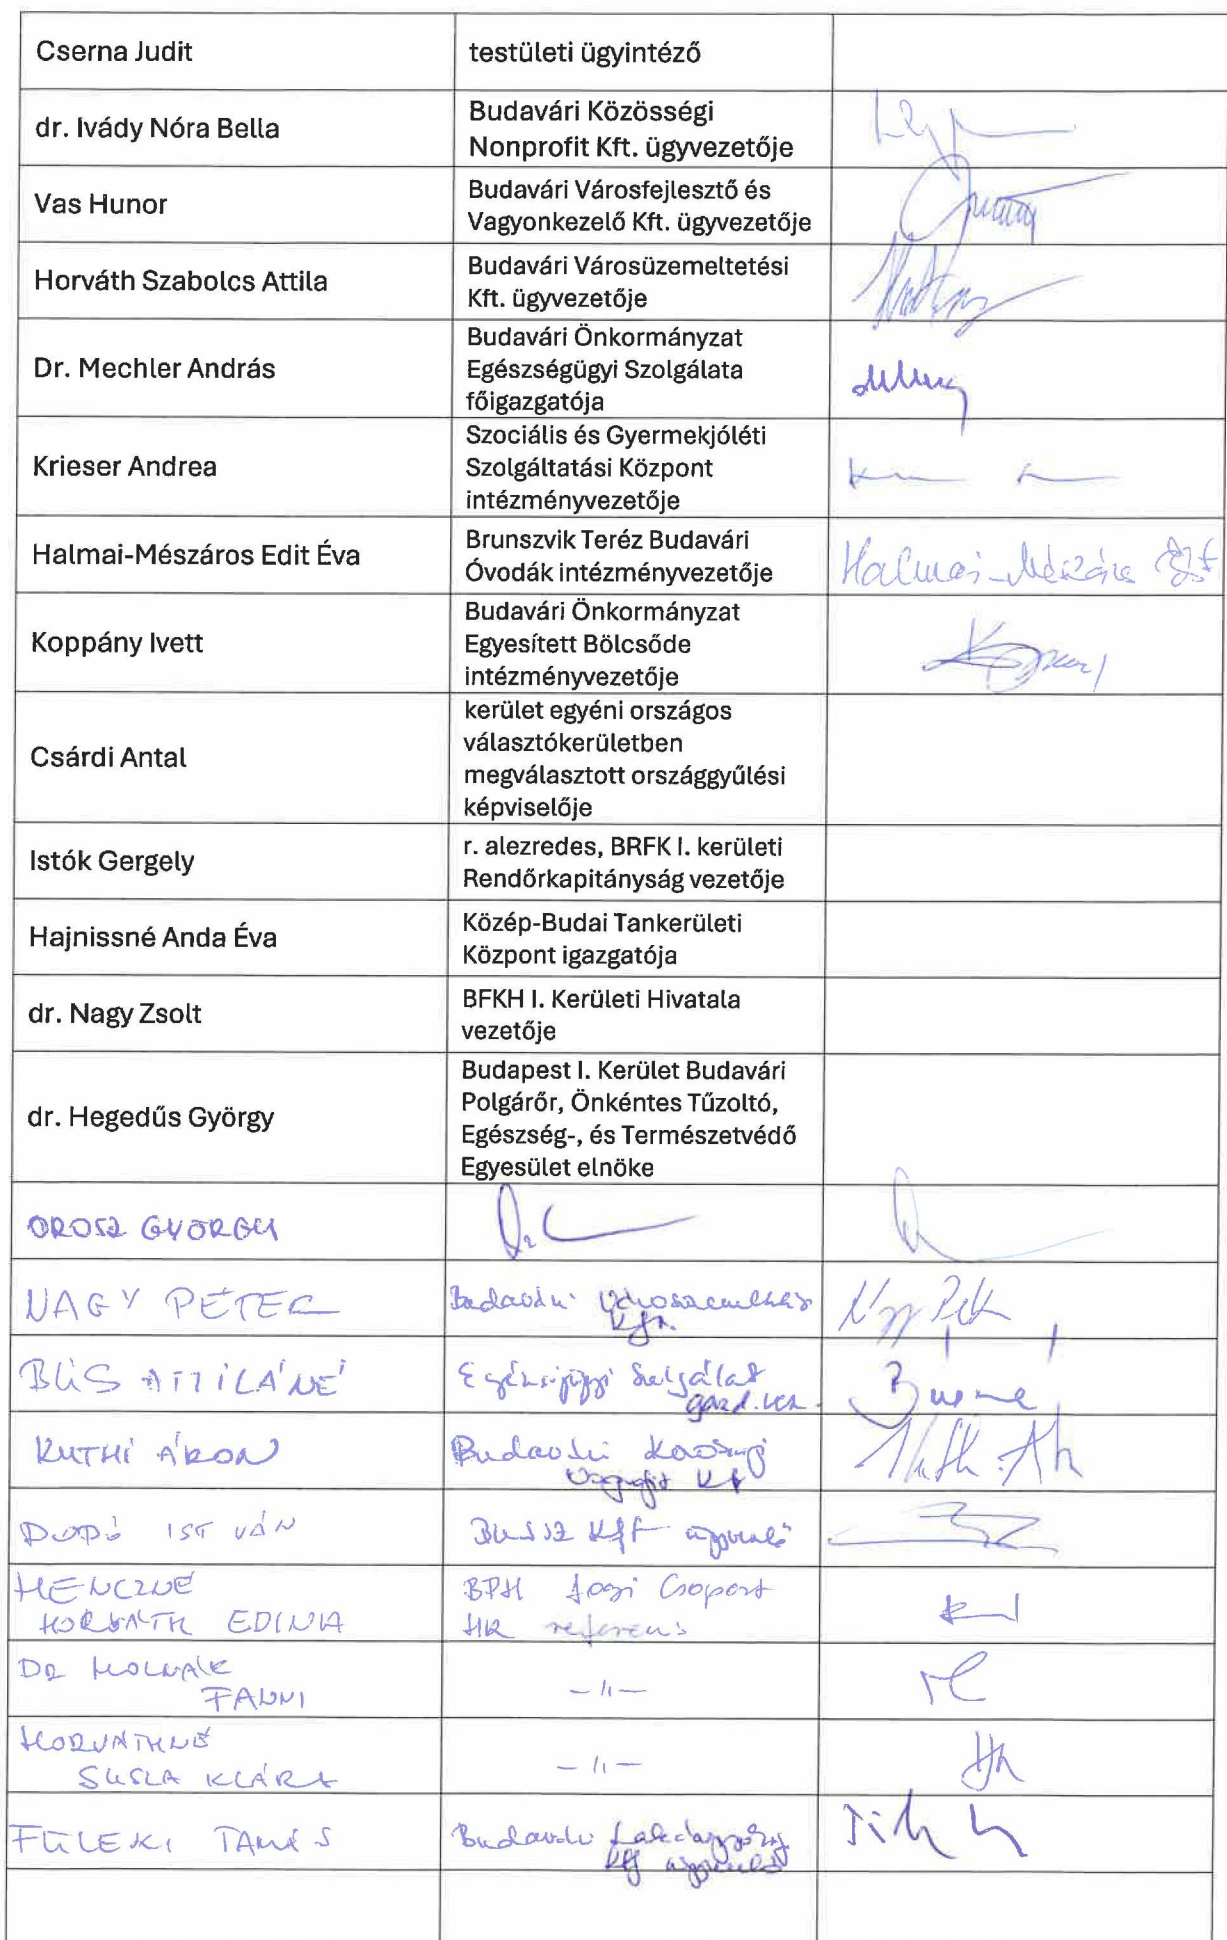 Cserna Judit
testületi ügyintéző
dr. Ivády Nóra Bella
Budavári Közösségi
Nonprofit Kft. ügyvezetője
Vas Hunor
Budavári Városfejlesztő és
Vagyonkezelő Kft. ügyvezetője
Horváth Szabolcs Attila
Budavári Városüzemeltetési
Kft. ügyvezetője
Dr. Mechler András
Budavári Önkormányzat
Egészségügyi Szolgálata
főigazgatója
Krieser Andrea
Szociális és Gyermekjóléti
Szolgáltatási Központ
intézményvezetője
Halmai-Mészáros Edit Éva
Brunszvik Teréz Budavári
Óvodák intézményvezetője
Halmai-Mészáros Edit
Koppány Ivett
Budavári Önkormányzat
Egyesített Bölcsőde
intézményvezetője
Csárdi Antal
kerület egyéni országos
választókerületben
megválasztott országgyűlési
képviselője
Istók Gergely
r. alezredes, BRFK I. kerületi
Rendőrkapitányság vezetője
Hajnissné Anda Éva
Közép-Budai Tankerületi
Központ igazgatója
dr. Nagy Zsolt
BFKH I. Kerületi Hivatala
vezetője
dr. Hegedűs György
Budapest I. Kerület Budavári
Polgárőr, Önkéntes Tűzoltó,
Egészség-, és Természetvédő
Egyesület elnöke
OROSZ GYÖRGY
NAGY PÉTER
Budavári
Kft.
BÚS ATTILÁNÉ
Egészségügyi Szolgálat
gazd. vez.
KUTHI ÁRON
Budavári Közösségi
Nonprofit Kft
DOPÓ ISTVÁN
Kft ügyvezető
HENCZNÉ
HORVÁTH EDINA
BPH Jogi Csoport
HR referens
DR MOLNÁR
FANNI
-11-
HORVÁTHNÉ
SUSLA KLÁRA
-11-
FÜLEKI TAMÁS
Budavári
Kft ügyvezető